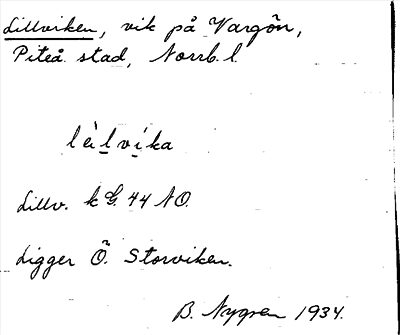 Lillviken, vik på Vargön,
Piteå stad, Norrb. l.
lìlvíka
Lillv. k G. 44 NO.
Ligger Ö. Storviken.
B. Nygren 1934.